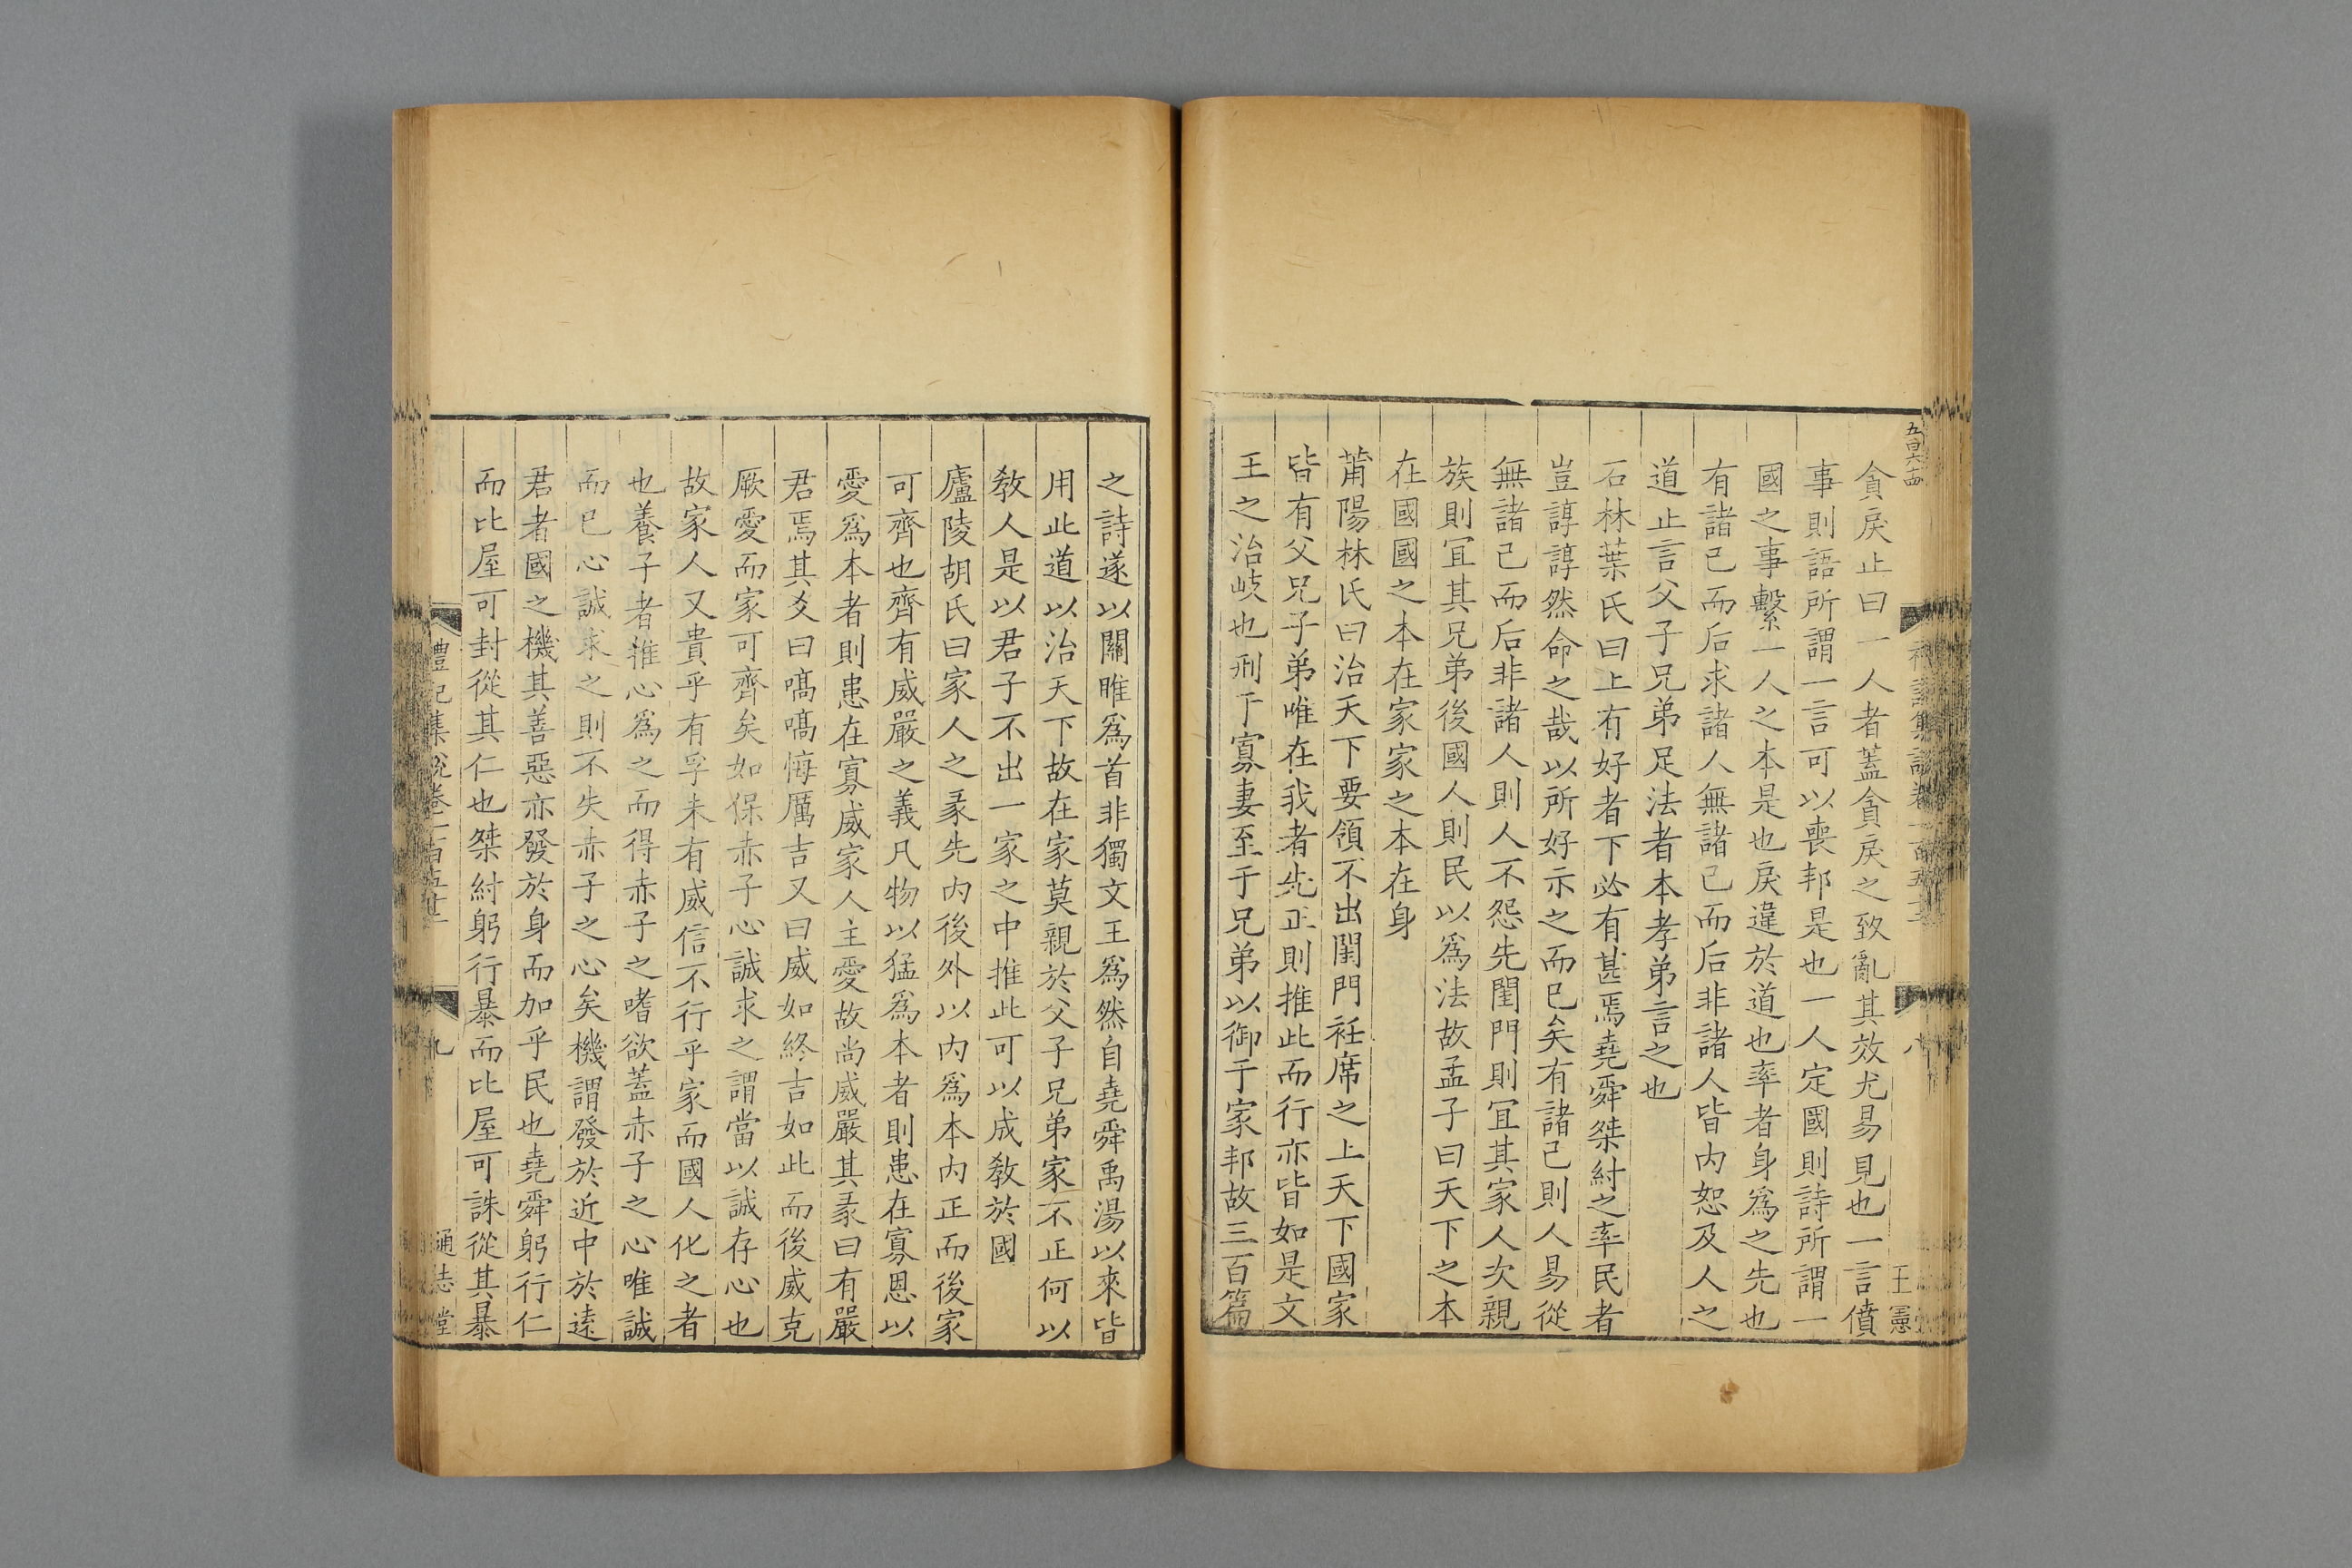 貪戾止曰一人者蓋貪戾之致亂其效尤易見也一言僨
事則語所謂一言可以喪邦是也一人定國則詩所謂一
國之事繫一人之本是也戾違於道也率者身爲之先也
有諸已而后求諸人無諸已而后非諸人皆内恕及人之
道止言父子兄弟足法者本孝弟言之也
石林葉氏曰上有好者下必有甚焉堯舜桀紂之率民者
豈諄諄然命之哉以所好示之而已矣有諸己則人易從
無諸己而后非諸人則人不怨先閨門則冝其家人次親
族則冝其兄弟後國人則民以爲法故孟子曰天下之本
在國國之本在家家之本在身
莆陽林氏曰治天下要領不出閨門衽席之上天下國家
皆有父兄子弟唯在我者先正則推此而行亦皆如是文
王之治岐也刑于寡妻至于兄弟以御于家邦故三百篇
王憲
八
之詩遂以關雎爲首非獨文王爲然自堯舜禹湯以來皆
用此道以治天下故在家莫親於父子兄弟家不正何以
教人是以君子不出一家之中推此可以成教於國
廬陵胡氏曰家人之彖先内後外以内爲本内正而後家
可齊也齊有威嚴之義凡物以猛爲本者則患在寡恩以
愛爲本者則患在寡威家人主愛故尚威嚴其彖曰有嚴
君焉其爻曰嗃嗃悔厲吉又曰威如終吉如此而後威克
厥愛而家可齊矣如保赤子心誠求之謂當以誠存心也
故家人又貴乎有孚未有威信不行乎家而國人化之者
也養子者推心爲之而得赤子之嗜欲蓋赤子之心唯誠
而已心誠求之則不失赤子之心矣機謂發於近中於逺
君者國之機其善惡亦發於身而加乎民也堯舜躬行仁
而比屋可封從其仁也桀紂躬行暴而比屋可誅從其暴
禮記集說卷一百五十
九
通志堂